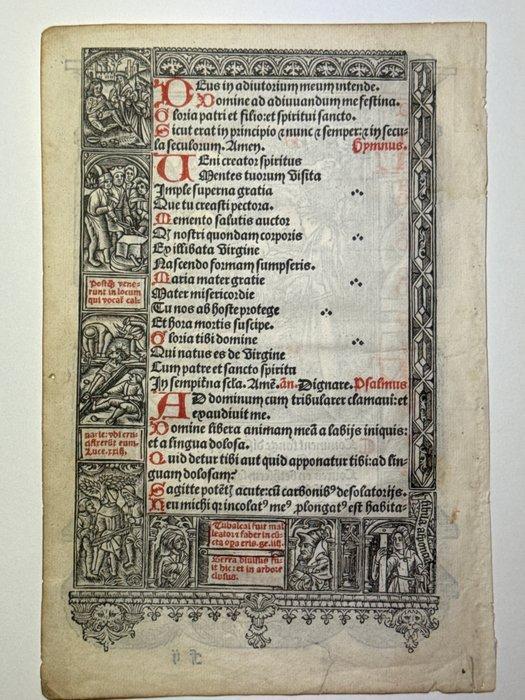 DEus in adiutorium meum intende.
Domine ad adiuuandum me festina.
Gloria patri et filio: et spiritui sancto.
Sicut erat in principio ⁊ nunc ⁊ semper: ⁊ in secu-
la seculorum. Amen. Hymnus.
UEni creator spiritus
Mentes tuorum visita
Imple superna gratia
Que tu creasti pectora.
Memento salutis auctor
Qꝫ nostri quondam corporis
Ex illibata virgine
Nascendo formam sumpseris.
Maria mater gratie
Mater misericordie
Tu nos ab hoste protege
Et hora mortis suscipe.
Gloria tibi domine
Qui natus es de virgine
Cum patre et sancto spiritu
In sempitna scla. Amē. añ. Dignare. Psalmus
AD dominum cum tribularer clamaui: et
exaudiuit me.
Domine libera animam meā a labijs iniquis:
et a lingua dolosa.
Quid detur tibi aut quid apponatur tibi: ad lin-
guam dolosam?
Sagitte potētꝭ acute: cū carbonibꝰ desolatorijs.
Heu michi qꝛ incolatꝰ meꝰ ꝓlongatꝰ est habita-
Postqꝫ vene-
runt in locum
qui vocat cal-
uarie: vbi cru-
cifixerūt eum.
Luce. xxiij.
Tubalcai fuit mal
leatorꝫ faber in cū-
cta oꝑa eris. ge. iiij.
Serra diuisus fu-
it hic: et in arbore
clusus.